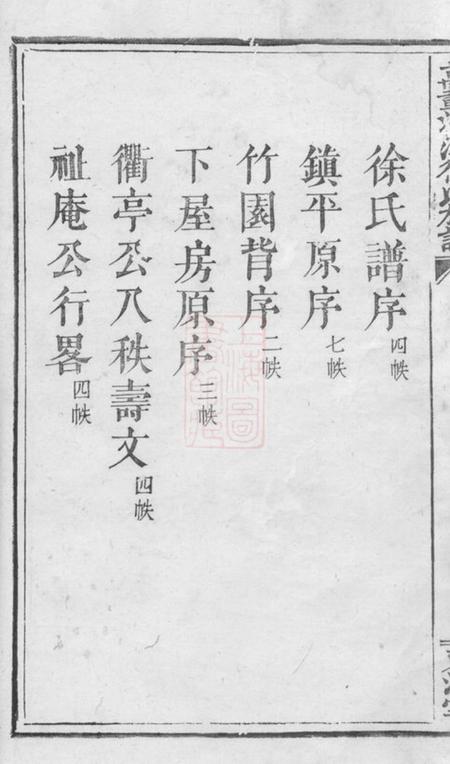 徐氏譜序 四帙
鎮平原序 七帙
竹園背序 二帙
下屋房原序 三帙
衢亭公八秩壽文 四帙
祉庵公行畧 四帙